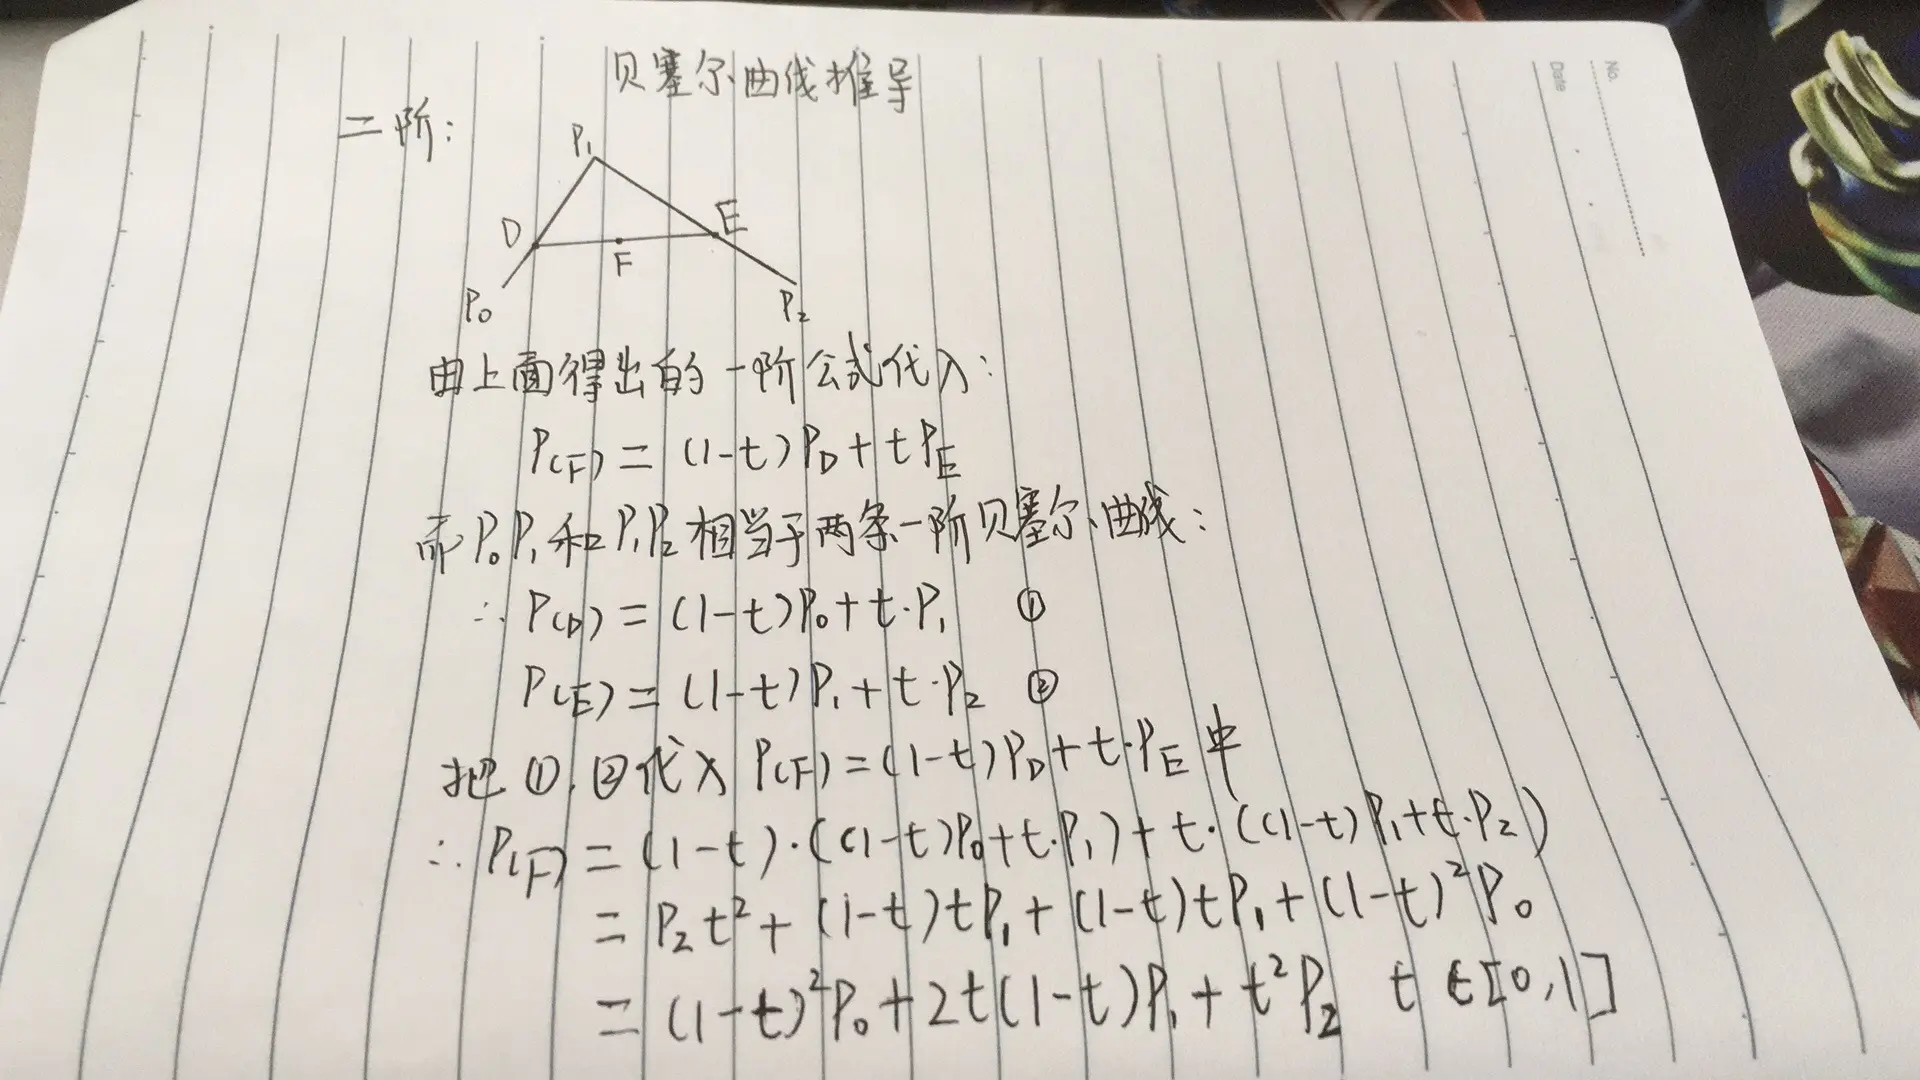 贝塞尔曲线推导
二阶:
P₁
D
E
F
P₀
P₂
由上面得出的一阶公式代入:
P(F) = (1-t)P_D + tP_E
而P₀P₁和P₁P₂相当于两条一阶贝塞尔曲线:
∴ P(D) = (1-t)P₀ + t·P₁ ①
P(E) = (1-t)P₁ + t·P₂ ②
把①.②代入 P(F) = (1-t)P_D + t·P_E 中
∴ P(F) = (1-t)·((1-t)P₀+t·P₁) + t·((1-t)P₁+t·P₂)
= P₂t² + (1-t)tP₁ + (1-t)tP₁ + (1-t)²P₀
= (1-t)²P₀ + 2t(1-t)P₁ + t²P₂ t ∈[0,1]
No.
Date